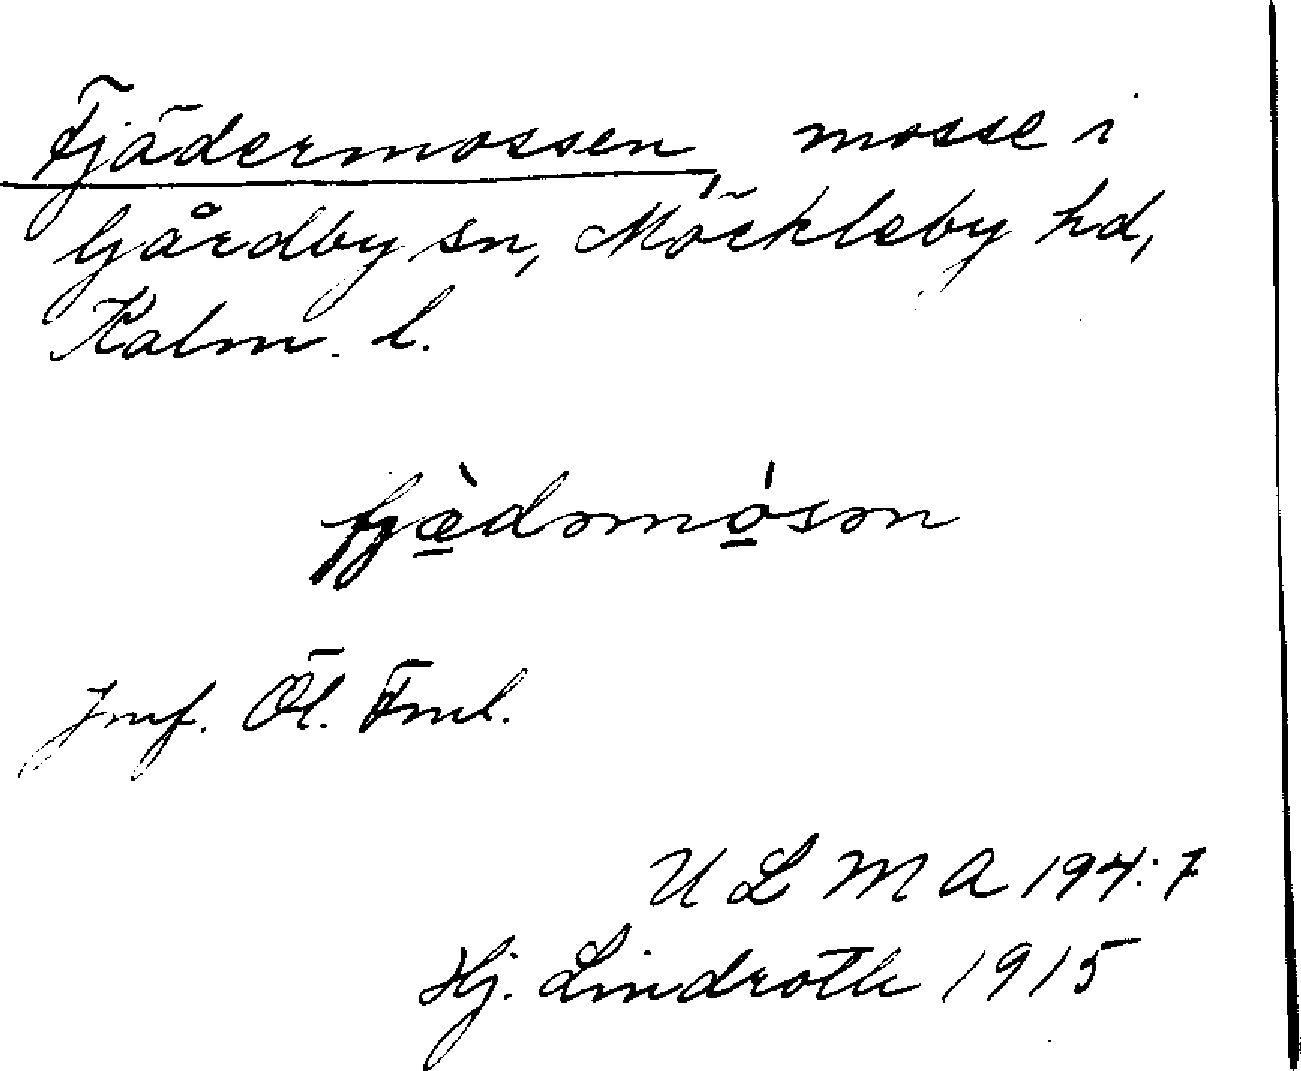 Fjädermossen, mosse i
Gårdby sn, Möckleby hd,
Kalm. l.
fjæ̀dəmósən
Jmf. Öl. Fml.
U L M A 194:7
Hj. Lindroth 1915